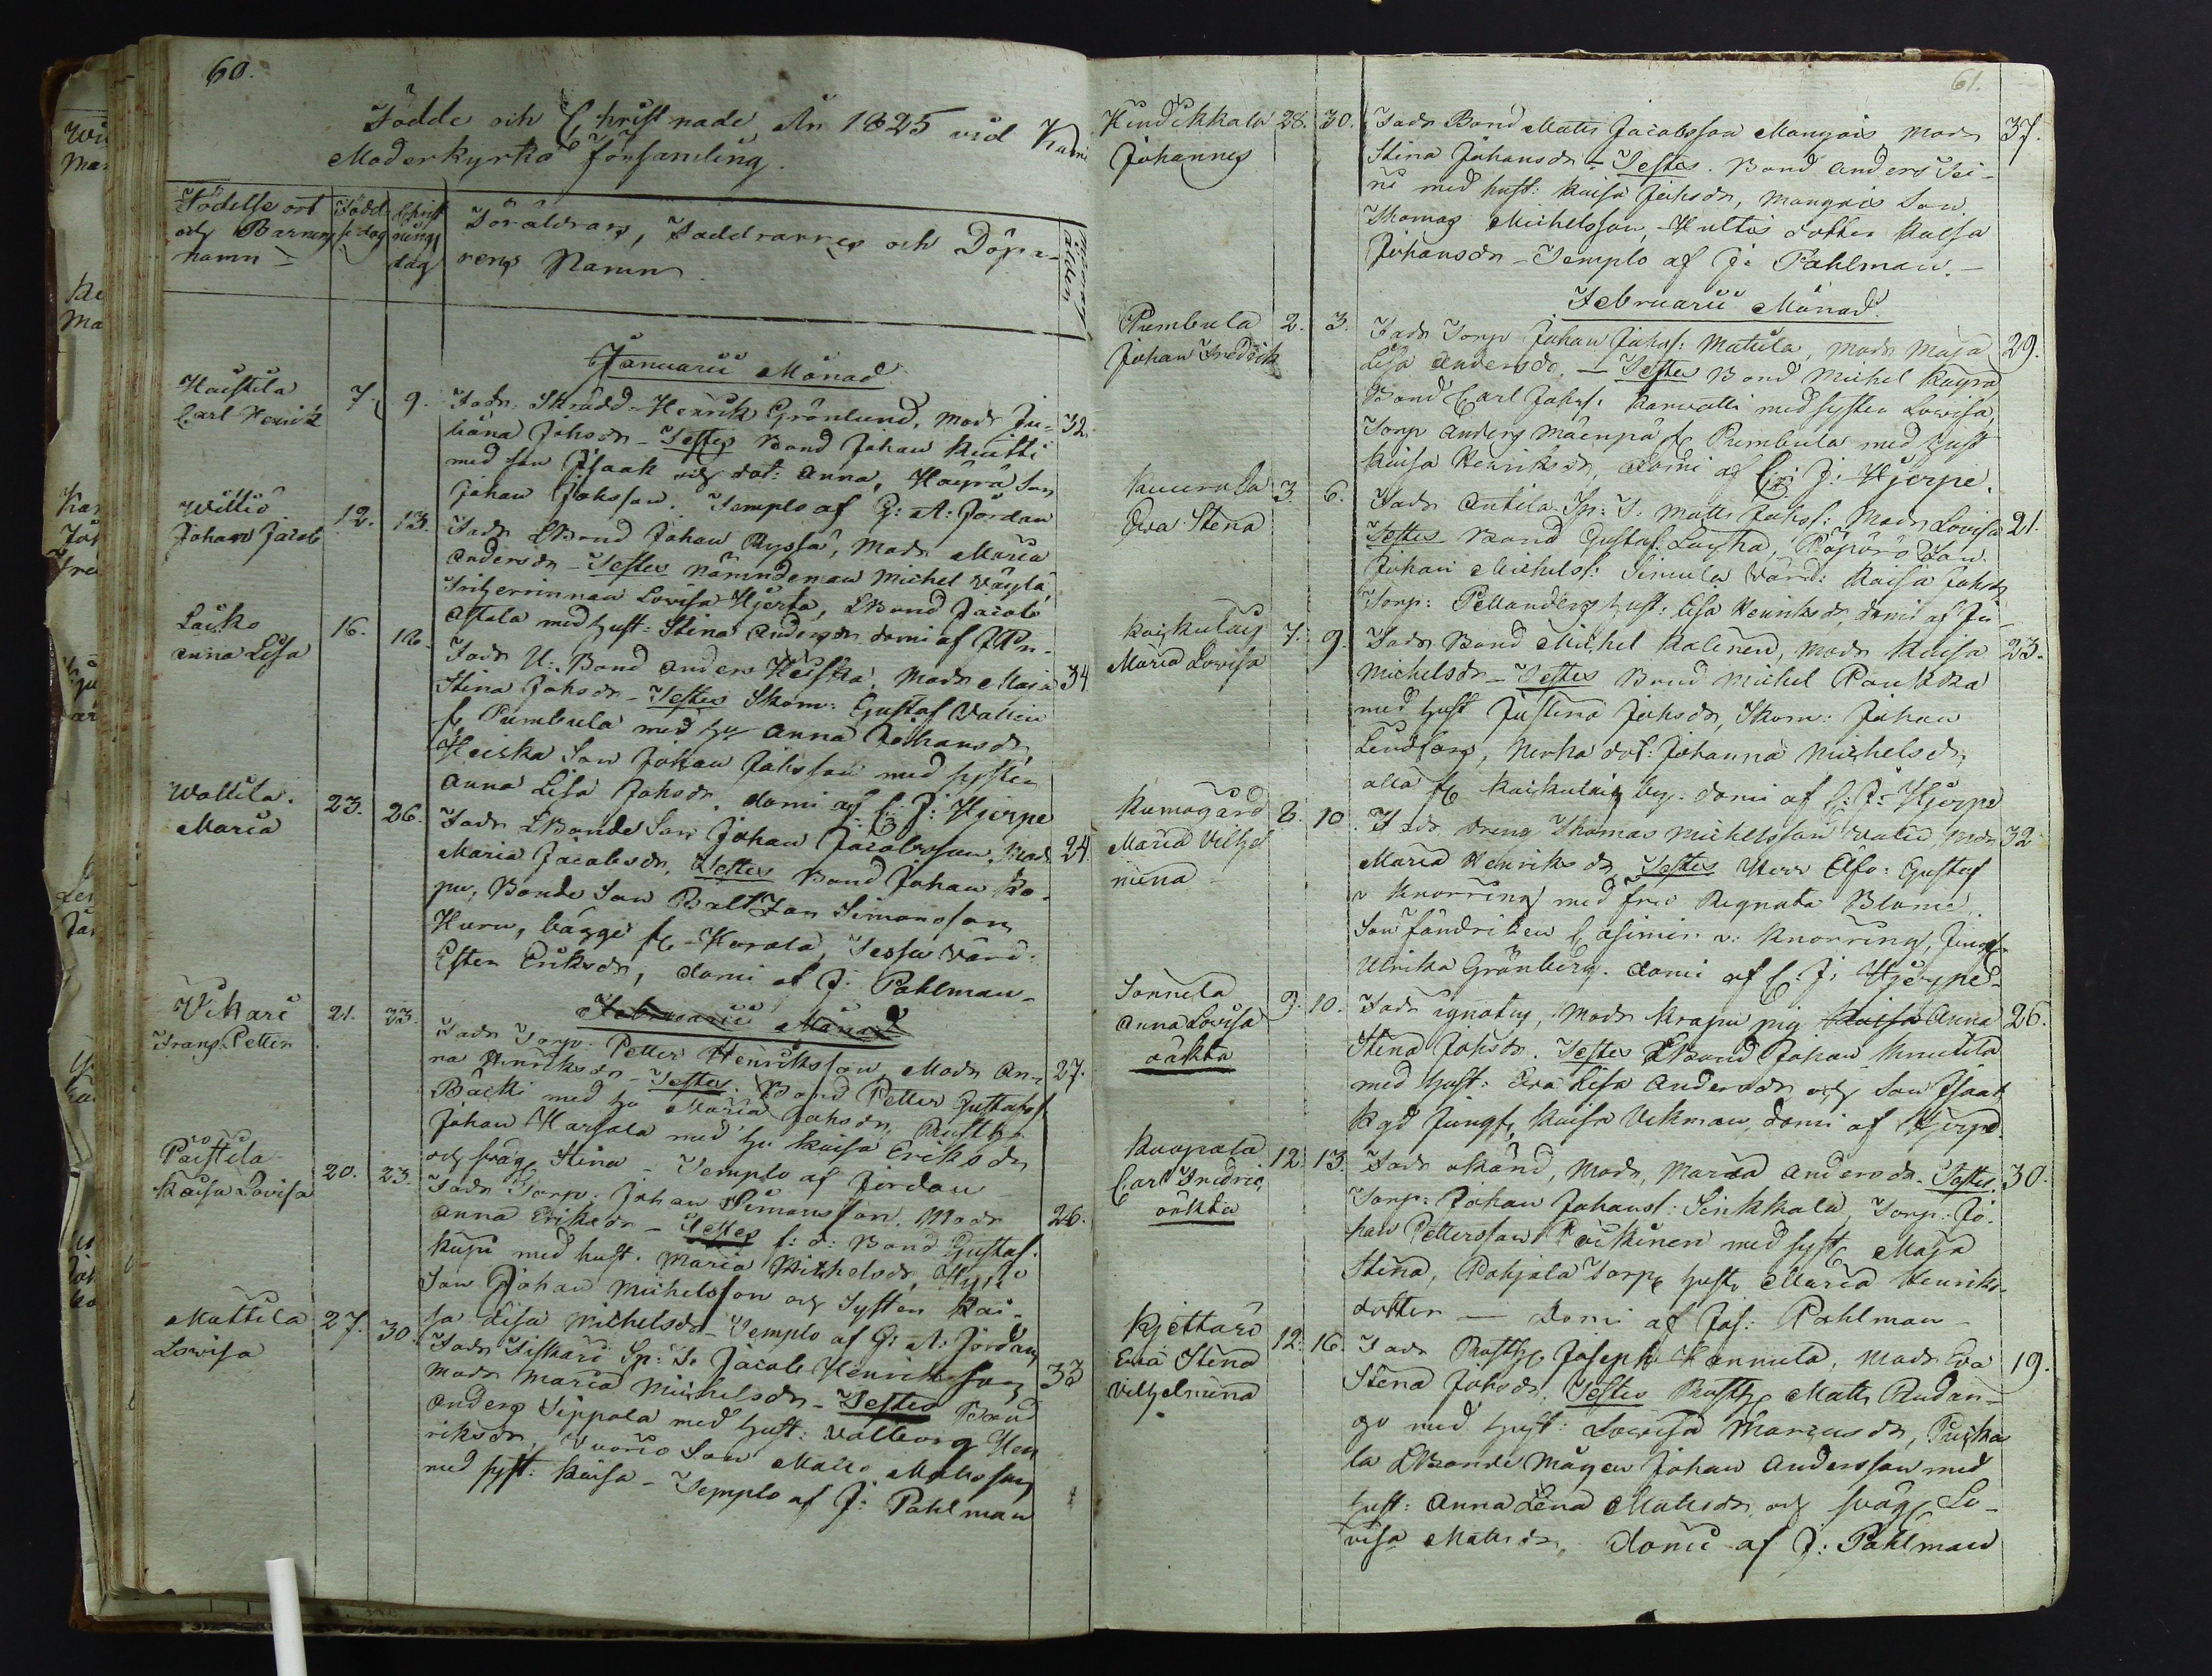 60.
Födde och Christnade, År 1825 vid Kumo
Moderkyrko församling.
Födelse ort
och Barnens
namn
Födel
se dag
Christ
nings
dag
Föräldrars, Faddrarnes och Döpa-
rens Namn
Modrens
ålder
Januarii Månad
Haistila
Carl Henrik
7. 9. Fadr. Skrädd. Henrik Grönlund, Modr Ju- 32.
liana Johsdr - Testes Bond Johan Knitti
med son Isaak och dot: Anna, Häyrä Son
Johan Johsson. Templo af G: A: Jordan
Villiö
Johan Jacob
12. 13. Fadr LBond Johan Ryssä, Modr Maria
Andersdr - Testes Nämndeman Michel Väylä,
Enkjerinnan Lovisa Hjerta, LBond Jacob
Astala med hust: Stina Andersdr domi af
Laiko
Anna Lisa
16. 18. Fadr U: Bond Anders Heiska, Modr Maja 34
Stina Johsdr - Testes Skom: Gustaf Valien
fr Pumbula med hu Anna Johansdr,
Heiska Son Johan Johsson med systen
Anna Lisa Johsdr. domi af C: J: Hjerpe
Wallila.
Maria
23. 26. Fadr LBonde Son Johan Jacobsson, Modr 24
Maria Jacobsdr, Testes Bond Johan Ko-
pu, Bonde Son Baltzar Simonsson
Huru, bägge fr Harola, Sessu Värd:
Ester Eriksdr, domi af J: Pahlman -
Februarii Månad
Vikari
Frans Petter
21. 23. Fadr Torp. Petter Henriksson, Modr An- 27.
na Henriksdr - Testes. Bond Petter Gustafss
Bäcki med hu Maria Johsdr, Rusth
Johan Harjala med hu Kaisa Eriksdr
och sväg Stina - Templo af Jordan
Päistilä
Kaisa Lovisa
20. 23. Fadr Torp: Johan Simonsson. Modr 26.
Anna Eriksdr - Testes f: d: Bond Gustaf
Kuju med hust. Maria Michelsdr, Hyti
Son Johan Michelsson och Systen Kai-
sa Lisa Michelsdr - Templo af G: A: Jordan
Mattila
Lovisa
27. 30. Fadr Fiskari Sp: T: Jacob Henriksson 33
Modr Maria Michelsdr - Testes Bond
Anders Sippola med hust: Valborg Hen
riksdr, Vuorio Son Matts Mattsson
med syst: Kaisa - Templo af J: Pahlman
61.
Kindikkala
Johannes
28. 30. Fadr Bond Matts Jacobsson Mangois Modr 37.
Stina Johansdr - Testes. Bond Anders Sei-
ni med hust: Kaisa Johsdr, Mangois Son
Thomas Michelsson, Huttis dotter Kaisa
Johansdr - Templo af J: Pahlman. -
Februarii Månad.
Pumbula
Johan Fredrik
2. 3. Fadr Torp Johan Johss: Matula, Modr Maja 29.
Lisa Andersdr. - Testes Bond Michel Kaupa
Bond Carl Johss: Karvatti med systen Lovisa,
Torp Anders Mäenpä fr Pumbula med hust
Kaisa Henriksdr, domi af C: J: Hjerpe.
Kuurola
Eva Stina
3 6. Fadr Antila Sp: T: Matts Johss: Modr Lovisa 21.
Testes Bond Gustaf Laysta, Äspörö Son
Johan Michelss: Simula Värd: Kaisa Johsdr
Torp: Pellanders hust: Lisa Henriksdr, domi af Jn
Kaiskulais
Maria Lovisa
7. 9. Fadr Bond Michel Kalinen, Modr Kaisa 23.
Michelsdr - Testes Bond Michel Paukka
med hust Justina Johsdr, Skom: Johan
Lindfors, Nerka dot: Johanna Michelsdr,
alla fr Kaiskulais by. domi af C: J: Hjerpe
Kumogård
Maria Vilhel
mina
8. 10. Fadr Dreng Thomas Michelsson Valis, Modr 32
Maria Henriksdr, Testes Herr Öfv: Gustaf
v Knorring med fru Regnata Blume
Son Fändriken Casimir v: Knorring, Jungf
Ulrika Grönberg. domi af C. J: Hjerpe.
Sonnila
Anna Lovisa
oäkta
9. 10. Fadr ignotus, Modr Krapu pig Kaisa Anna 26.
Stina Johsdr. Testes LBond Johan Knutila
med hust: Eva Lisa Andersdr och Son Isaak
Kgd Jungf, Kaisa Vekman, domi af Hjerpe.
Knapala
Carl Fredric
oäkta
12. 13. Fadr okänd, Modr, Maria Andersdr. Testes. 30.
Torp: Johan Johanss: Sinkkala, Torp: Jo-
han Pettersson Päikinen med syst Maja
Stina, Pohjala Torp hust Maria Henriks-
dotter - domi af Jos: Pahlman -
Kjettärö
Eva Stina
Vilhelmina
12. 16. Fadr Rusth Joseph Hannula, Modr Eva 19.
Stina Johsdr. Testes Rusth Matts Rudan-
go med hust: Lovisa Marcusdr, Puska
la LBonde Mågen Johan Andersson med
hust: Anna Lena Mattsdr, och sväg Lo-
visa Mattsdr, domi af J: Pahlman